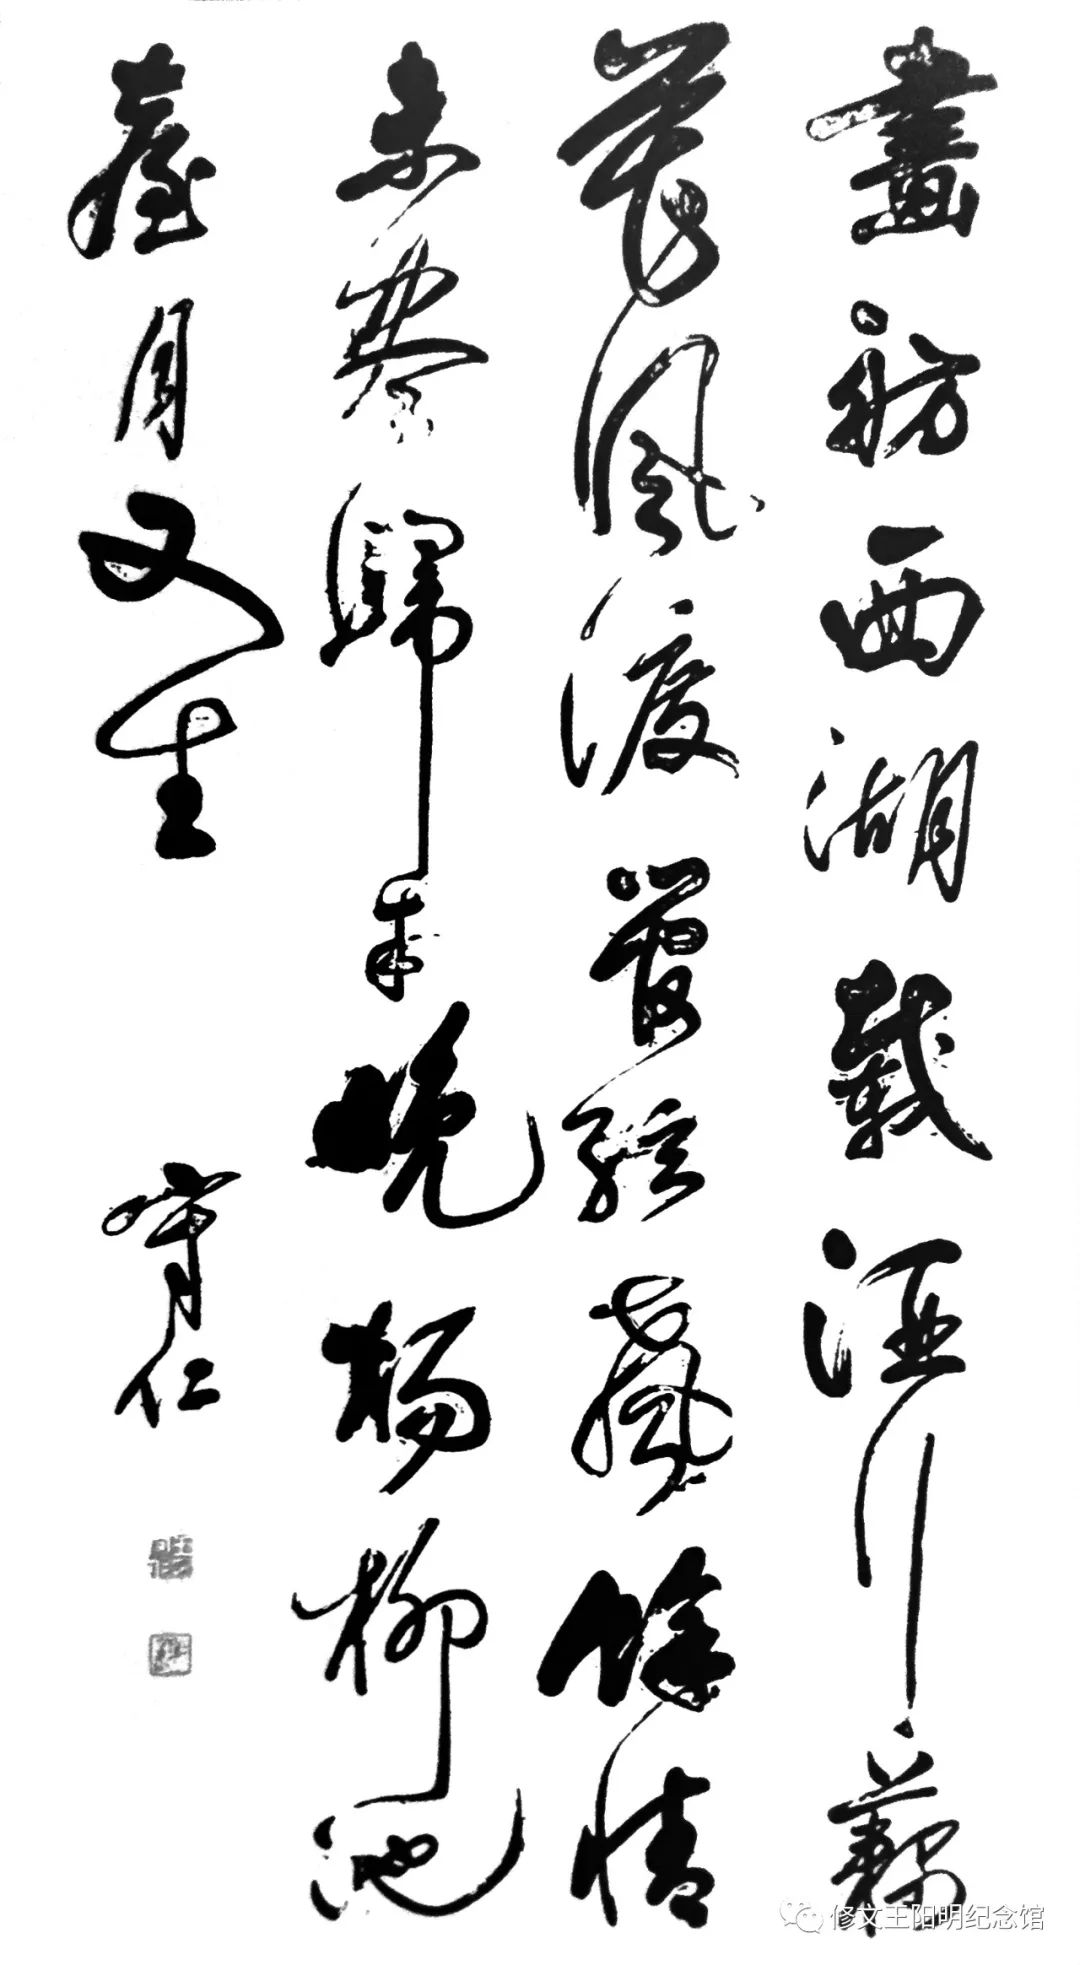 畫舫西湖載酒行藕
花風渡管絃聲餘情
未盡歸來晚楊柳池
臺月又生
守仁
修文王阳明纪念馆